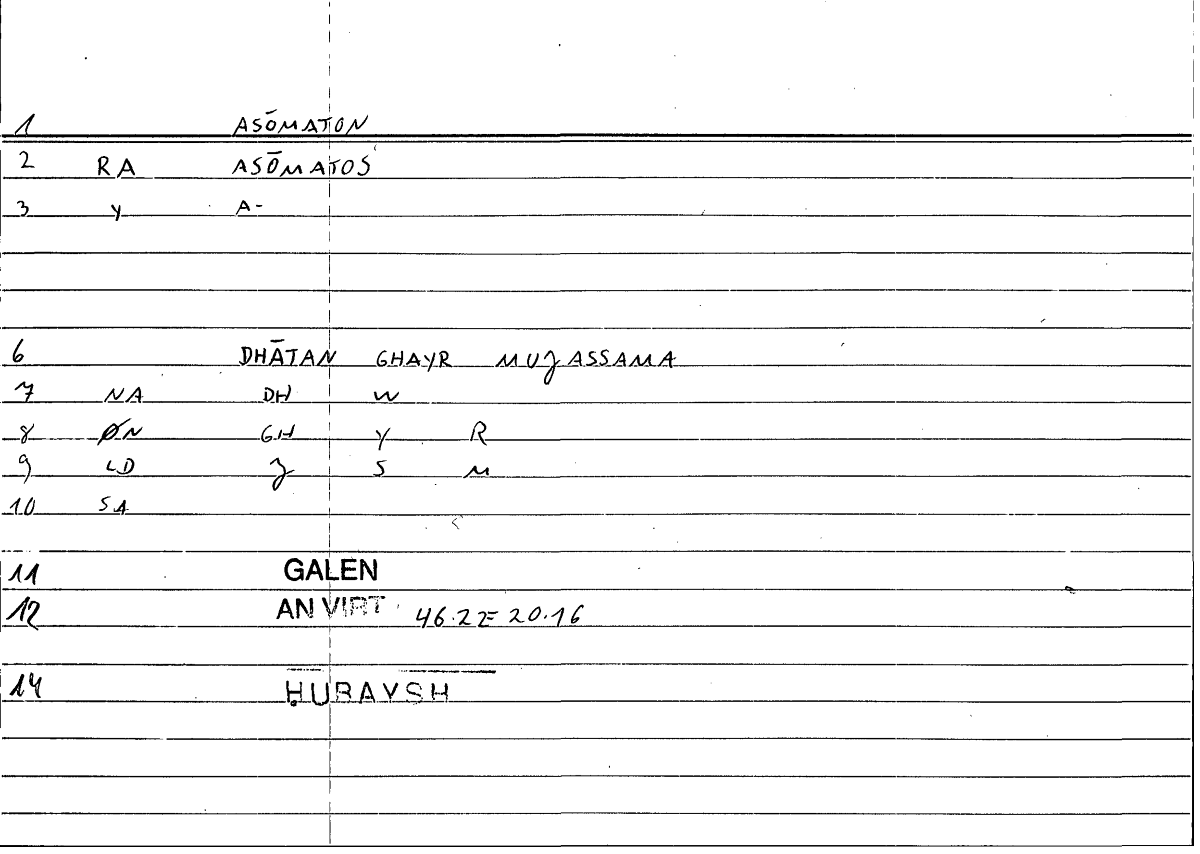 1 ASŌMATON
2 RA ASŌMATOS
3 Y A-
6 DHĀTAN GHAYR MUJASSAMA
7 NA DH W
8 ØN GH Y R
9 LD J S M
10 SA
11 GALEN
12 AN VIRT 46.22 = 20.16
14 ḤUBAYSH